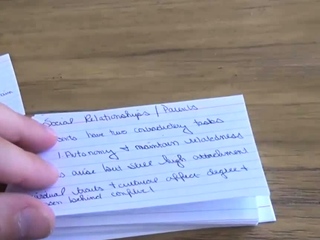 Social Relationships / Parents
have two contradicting tasks
Autonomy & maintain relatedness
arise but still high attachment
& cultural affect degree &
behind conflict